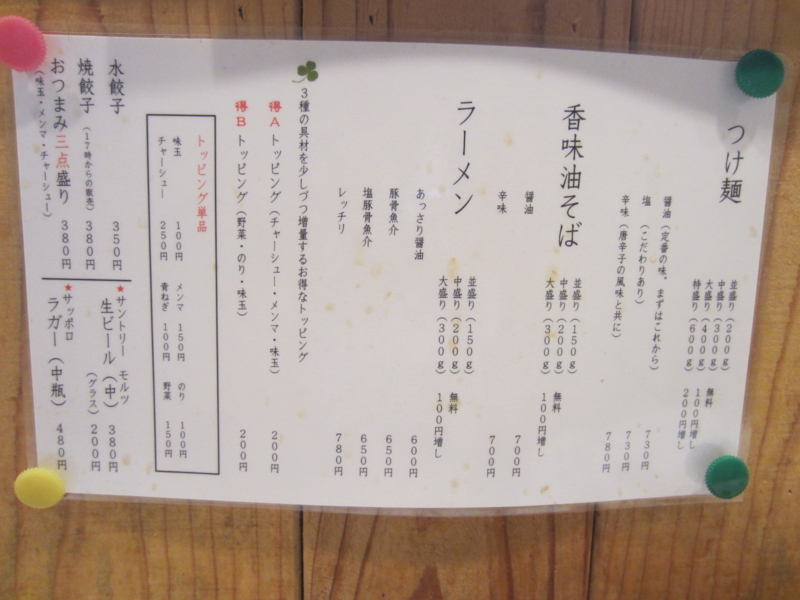 つけ麺
並盛り（200g）
中盛り（300g） 無料
大盛り（400g） 100円増し
特盛り（600g） 200円増し
醤油（定番の味。まずはこれから） 730円
塩（こだわりあり） 730円
辛味（唐辛子の風味と共に） 780円
香味油そば
並盛り（150g）
中盛り（200g） 無料
大盛り（300g） 100円増し
醤油 700円
辛味 700円
ラーメン
並盛り（150g）
中盛り（200g） 無料
大盛り（300g） 100円増し
あっさり醤油 600円
豚骨魚介 650円
塩豚骨魚介 650円
レッチリ 780円
3種の具材を少しづつ増量するお得なトッピング
得A トッピング（チャーシュー・メンマ・味玉） 200円
得B トッピング（野菜・のり・味玉） 200円
トッピング単品
味玉 100円 メンマ 150円 のり 100円
チャーシュー 250円 青ねぎ 100円 野菜 150円
水餃子 350円
焼餃子（17時からの販売） 380円
おつまみ三点盛り 380円
（味玉・メンマ・チャーシュー）
★サントリー モルツ
生ビール（中） 380円
（グラス） 200円
★サッポロ
ラガー（中瓶） 480円